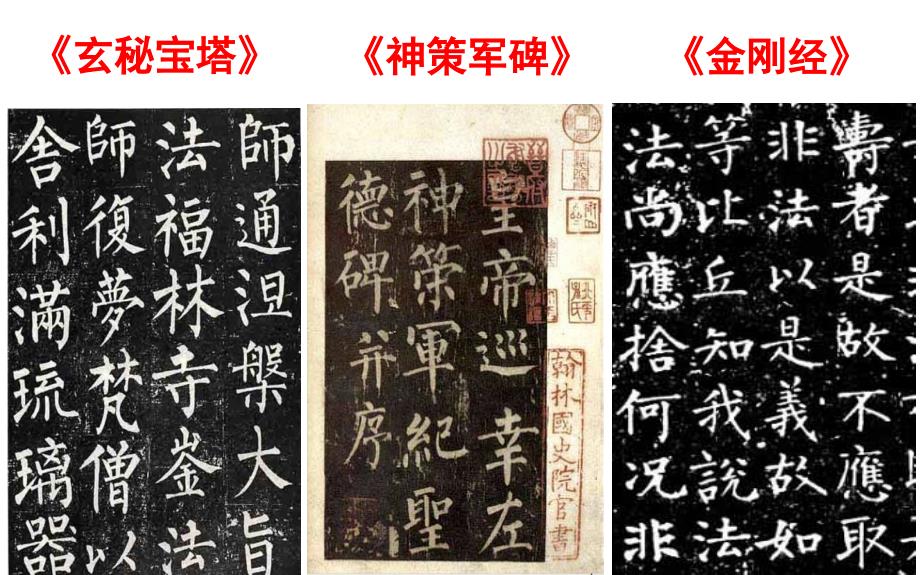 《玄秘宝塔》
《神策军碑》
《金刚经》
師通涅槃大旨
法福林寺崟法
師復夢梵僧以
舍利滿琉璃器
翰林國史院官書
皇帝巡幸左
神策軍紀聖
德碑并序
壽者是故不應取
非法以是義故如
等比丘知我說法
法尚應捨何況非